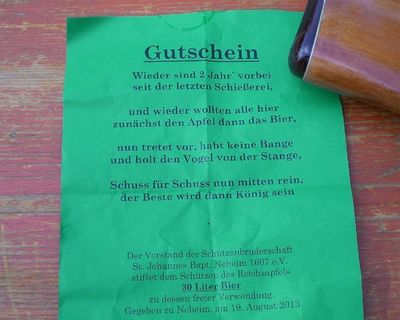 Gutschein
Wieder sind 2 Jahr` vorbei
seit der letzten Schießerei,
und wieder wollten alle hier
zunächst den Apfel dann das Bier,
nun tretet vor, habt keine Bange
und holt den Vogel von der Stange,
Schuss für Schuss nun mitten rein,
der Beste wird dann König sein
Der Vorstand der Schützenbruderschaft
St. Johannes Bapt. Neheim 1607 e.V.
stiftet dem Schützen des Reichsapfels
30 Liter Bier
zu dessen freier Verwendung.
Gegeben zu Neheim, am 19. August 2013